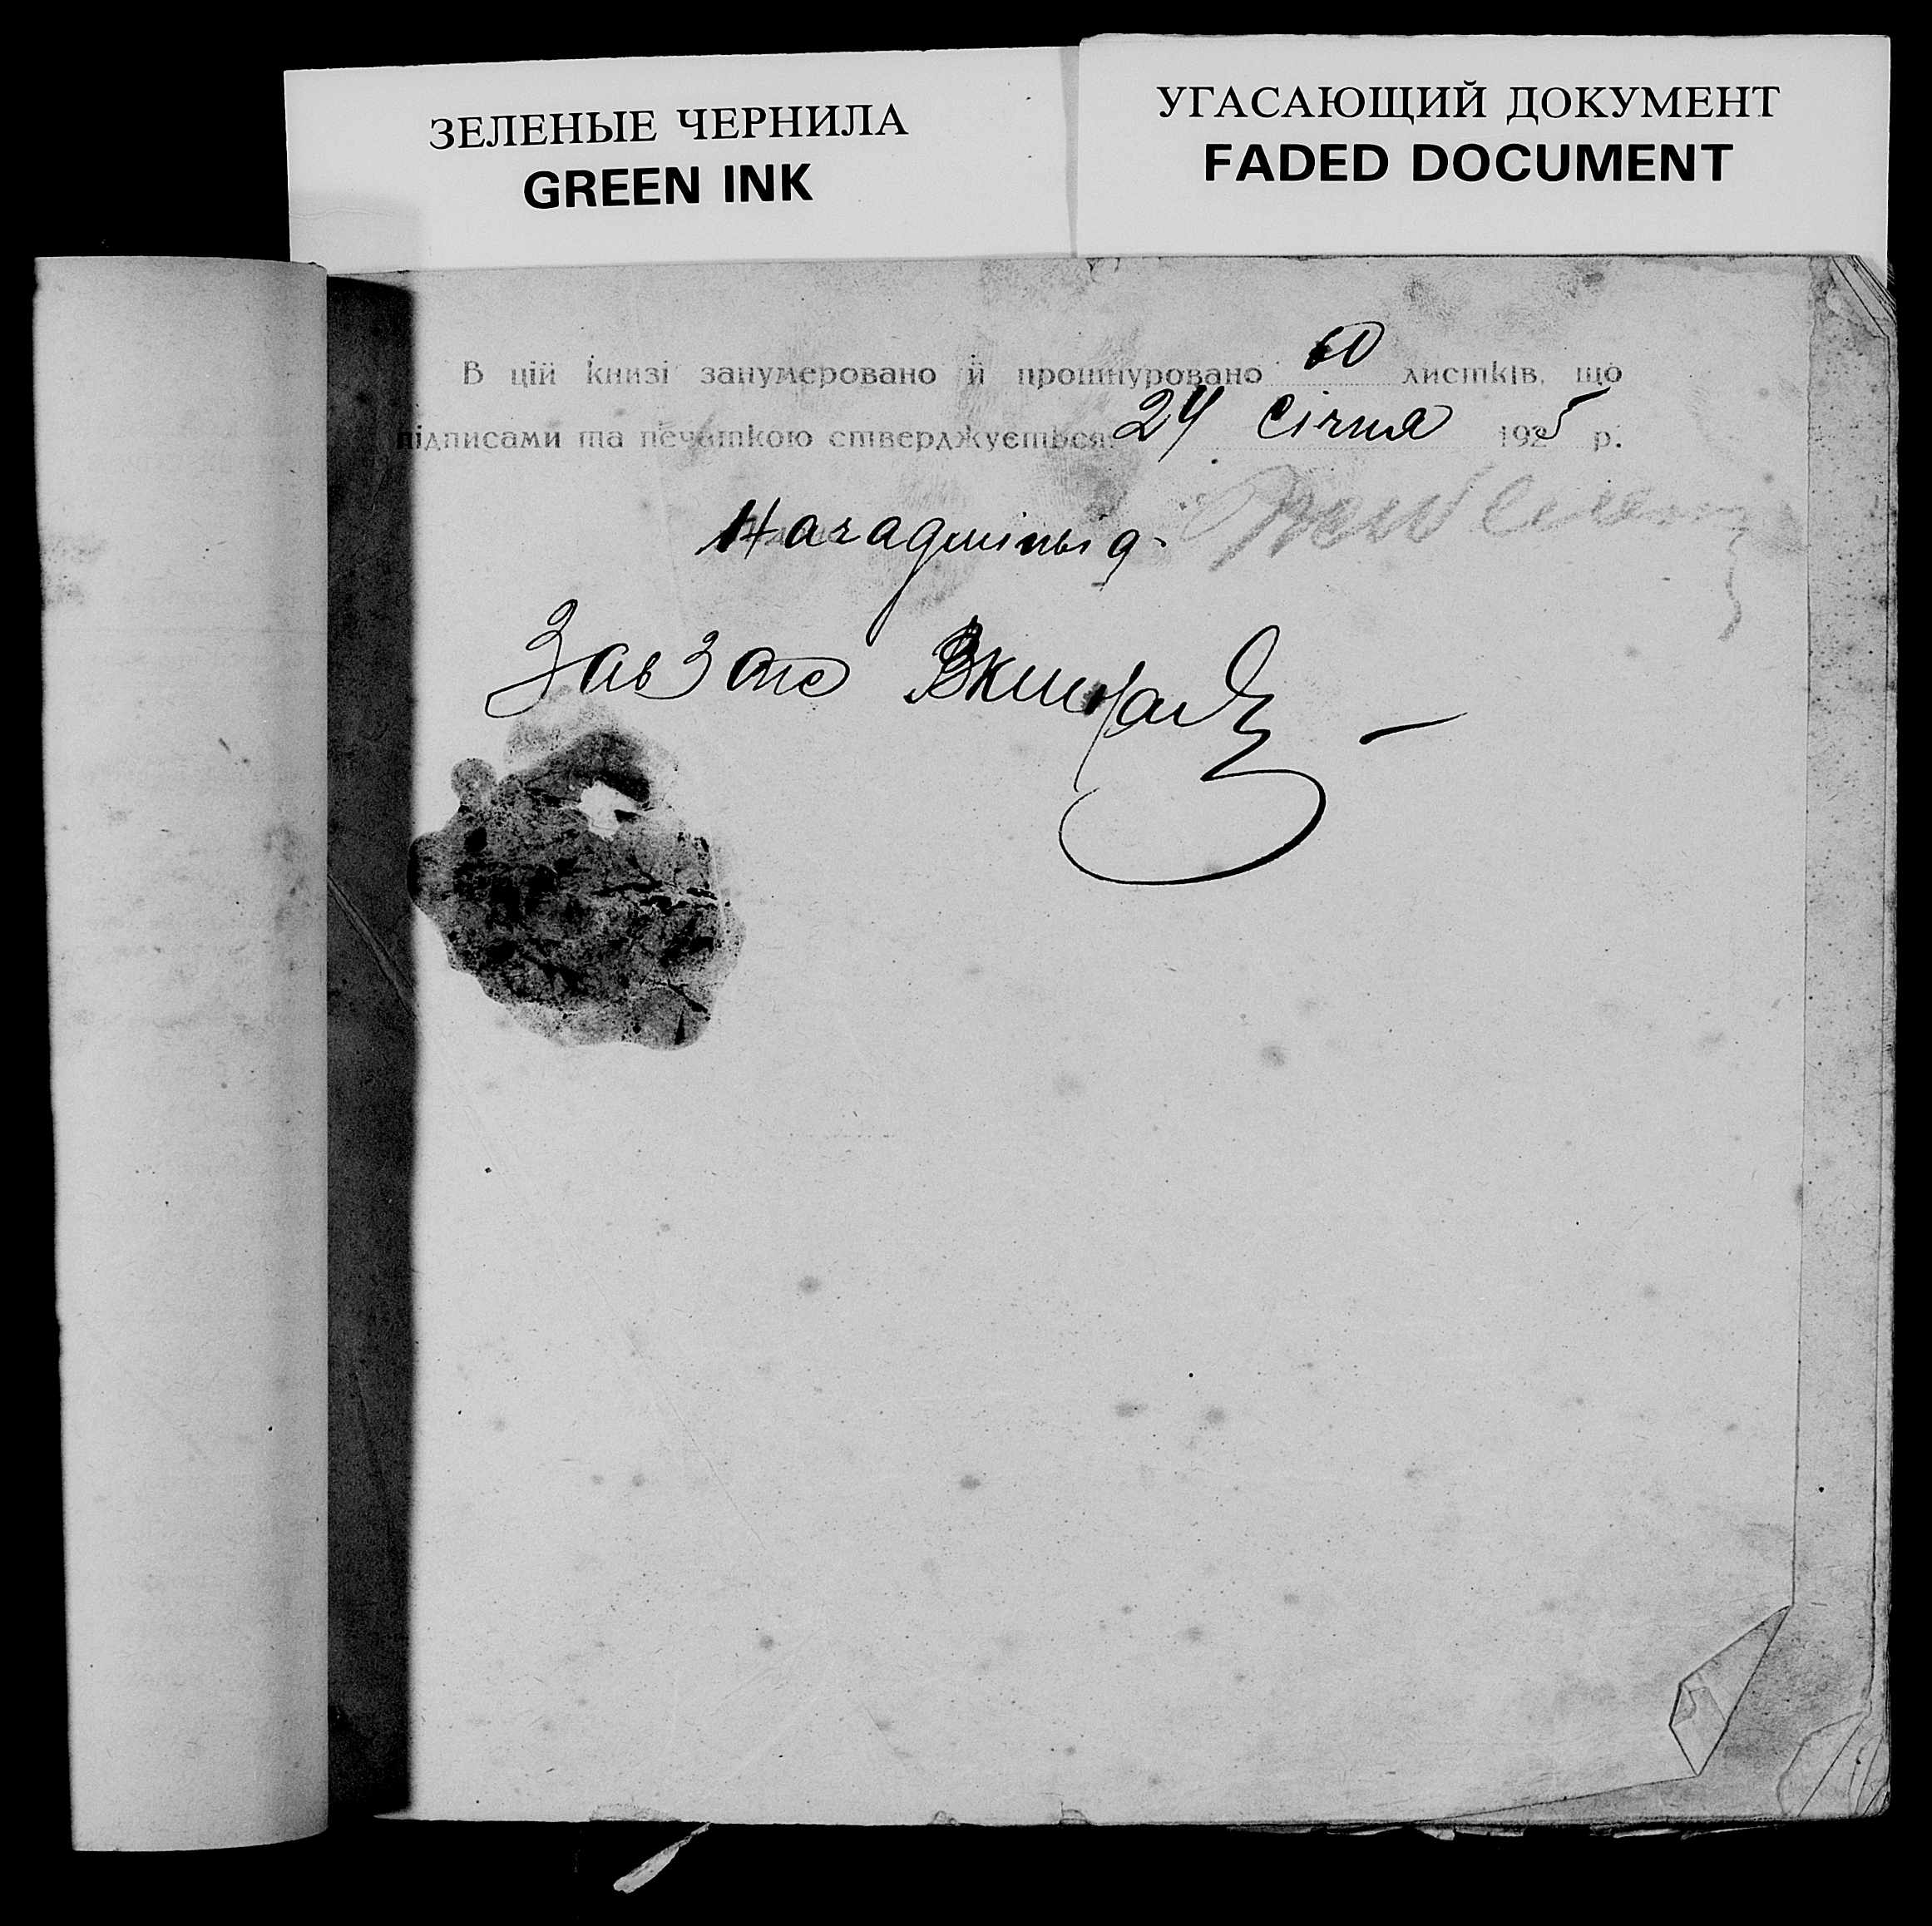 ЗЕЛЕНЫЕ ЧЕРНИЛА
GREEN INK
УГАСАЮЩИЙ ДОКУМЕНТ
FADED DOCUMENT
В цій книзі занумеровано й прошнуровано 60 листків, що
підписами та печаткою стверджується 24 січня 1925 р.
Начадмінвід
ЗавЗагс